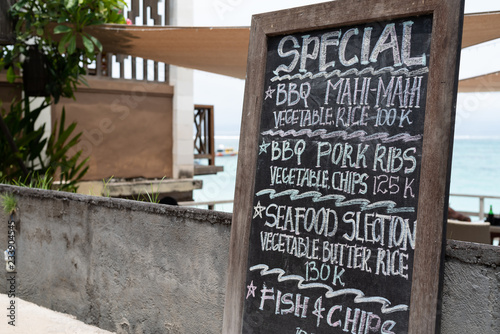 SPECIAL
BBQ MAHI-MAHI
VEGETABLE.RICE 100K
BBQ PORK RIBS
VEGETABLE.CHIPS 125K
SEAFOOD SLECTION
VEGETABLE.BUTTER.RICE
130K
FISH & CHIPS
233904545